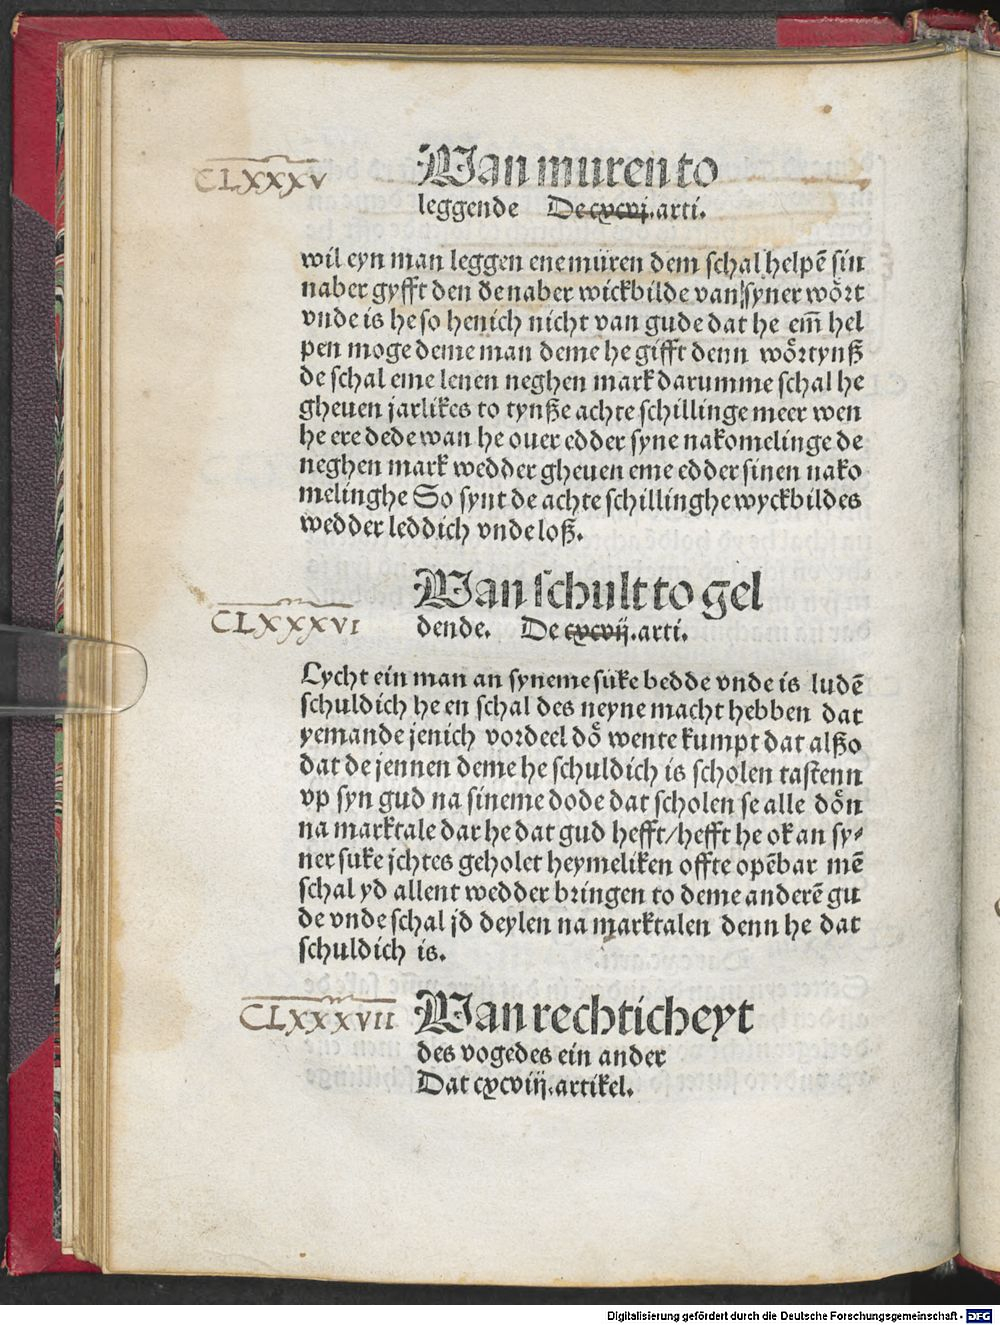 CLXXXV
Van muren to
leggende De cxcvj. arti.
wil eyn man leggen ene müren dem schal helpē sin
naber gyfft den de naber wickbilde van syner wört
vnde is he so henich nicht van gude dat he em̄ hel
pen moge deme man deme he gifft denn wörtynß
de schal eme lenen neghen mark darumme schal he
gheuen jarlikes to tynße achte schillinge meer wen
he ere dede wan he ouer edder syne nakomelinge de
neghen mark wedder gheuen eme edder sinen nako
melinghe So synt de achte schillinghe wyckbildes
wedder leddich vnde loß.
CLXXXVI
Van schult to gel
dende. De cxcvij. arti.
Lycht ein man an syneme süke bedde vnde is ludē
schuldich he en schal des neyne macht hebben dat
yemande jenich vordeel dö wente kumpt dat alßo
dat de jennen deme he schuldich is scholen tastenn
vp syn gud na sineme dode dat scholen se alle dön
na marktale dar he dat gud hefft/hefft he ok an sy⸗
ner suke jchtes geholet heymeliken offte opēbar mē
schal yd allent wedder bringen to deme anderē gu
de vnde schal jd deylen na marktalen denn he dat
schuldich is.
CLXXXVII
Van rechticheyt
des vogedes ein ander
Dat cxcviij. artikel.
Digitalisierung gefördert durch die Deutsche Forschungsgemeinschaft - DFG